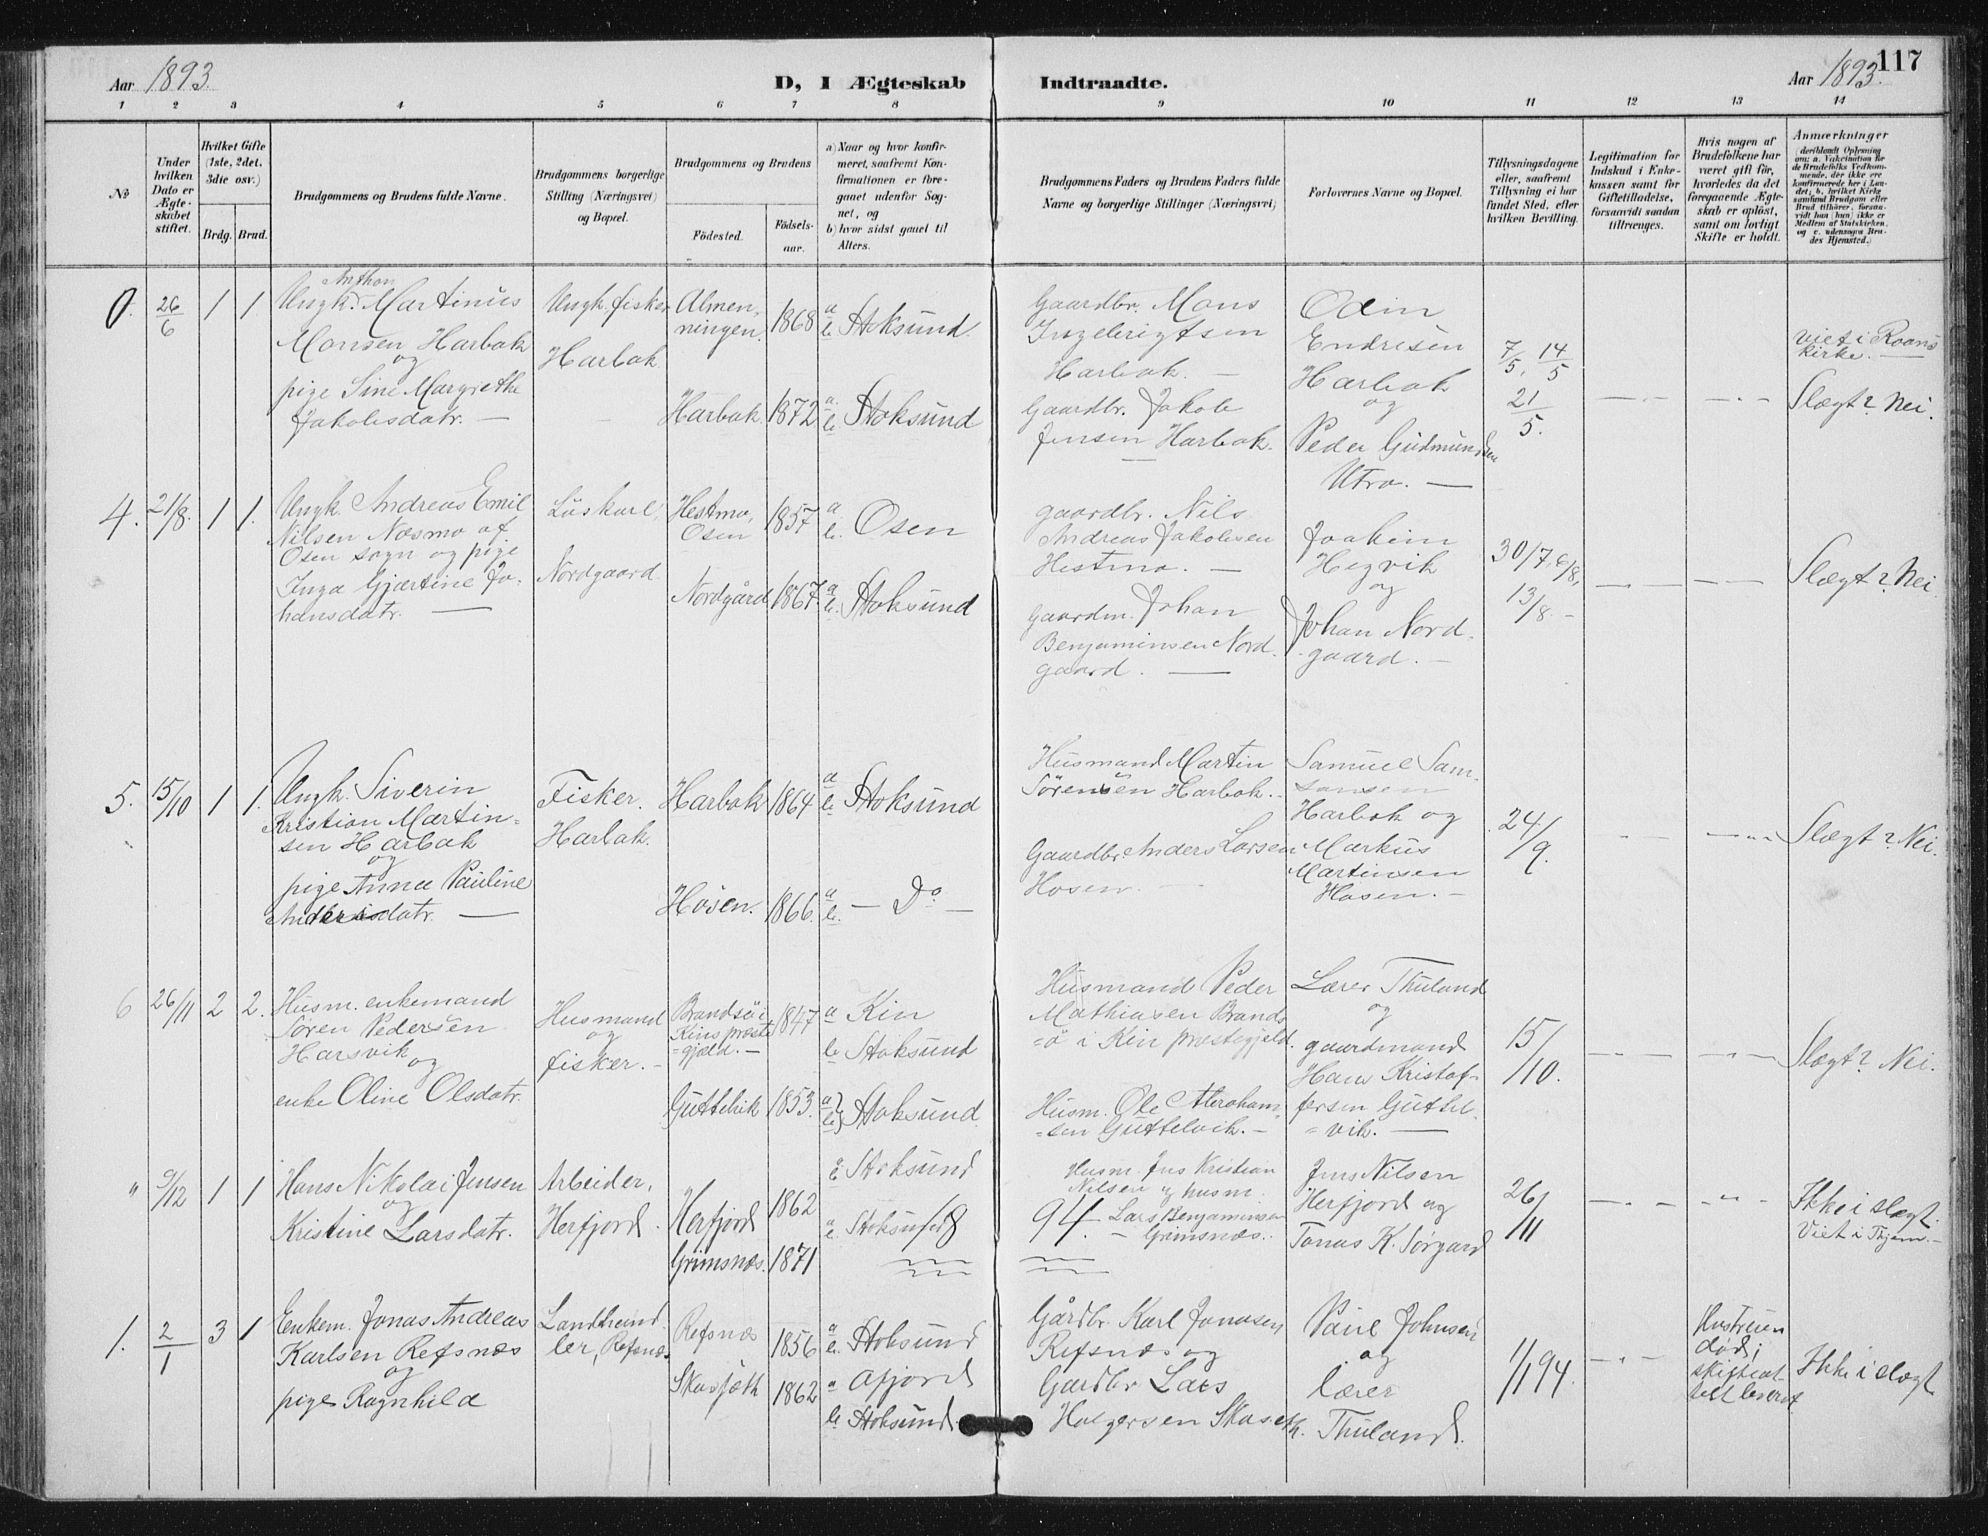 117
Aar 1893.
D, I Ægteskab Indtraadte.
Aar 1893.
1 2 3 4 5 6 7 8 9 10 11 12 13 14
No
Under hvilken Dato er Ægteskabet stiftet.
Hvilket Gifte (1ste, 2det, 3die osv.)
Brdg. Brud.
Brudgommens og Brudens fulde Navne.
Brudgommens borgerlige Stilling (Næringsvei) og Bopæl.
Brudgommens og Brudens
Fødested.
Fødselsaar.
a) Naar og hvor konfirmeret, saafremt Konfirmationen er foregaaet udenfor Sognet, og
b) hvor sidst gaaet til Alters.
Brudgommens Faders og Brudens Faders fulde Navne og borgerlige Stillinger (Næringsvei)
Forlovernes Navne og Bopæl.
Tillysningsdagene eller, saafremt Tillysning ei har fundet Sted, efter hvilken Bevilling.
Legitimation for Indskud i Enkekassen samt for Giftetilladelse, forsaavidt saadan tiltrænges.
Hvis nogen af Brudefolkene har været gift før, hvorledes da det foregaaende Ægteskab er opløst, samt om lovligt Skifte er holdt.
Anmærkninger
0. 26/6 1 1
Ungk. Anthon Martinus
Monsen Harbak
og
pige Sine Margrethe
Jakobsdatr. —
Ungk. fisker
Harbak
Almenningen. 1868 a b Stoksund
Harbak. 1872 a. b. Stoksund
Gaardbr. Mons
Ingebrigtsen
Harbak. —
Gaardbr. Jakob
Jensen Harbak.
Odin
Endresen
Harbak
og
Peder Gudmundsen
Utro. —
7/5, 14/5
21/5.
viet i Roans
kirke. —
Slægt? Nei.
4. 21/8. 1 1.
Ungk. Andreas Emil
Nilsen Næsmo af
Osen sogn og pige
Inga Gjertine Johansdatr. —
Nordgaard
Hestmo,
Osen 1857 a b. Osen
Nordgård 1867. a b. Stoksund
gaardbr. Nils
Andreas Jakobsen
Hestmo. —
gaardm. Johan
Benjaminsen Nordgaard. —
Joakim
Hegvik
og
Johan Nordgaard. —
30/7, 6/8,
13/8. -
Slægt? Nei.
5. 15/10 1 1.
Ungk. Siverin
Kristian Martinsen Harbak
og
pige Anna Pauline
Andersdatr. —
Fisker.
Harbak.
Harbak 1864 a b Stoksund
Hosen. 1866. a b. — Do —
Husmand Martin
Sørensen Harbak.
Gaardbr. Anders Larsen
Hosen. —
Samuel Samsonsen
Harbak og
Markus
Martinsen
Hosen. —
24/9.
Slægt? Nei.
6 26/11 2 2.
Husm. enkemand
Søren Pedersen
Harsvik og
enke Oline Olsdatr.
Husmand
og
fisker. —
Brandsö i
Kins præstegjæld. — 1847 a Kin
b Stoksund
Guttelvik 1853. a b} Stoksund.
Husmand Peder
Mathiasen Brandsö i Kin præstegjeld.
Husm. Ole Abrahamsen Guttelvik. —
Lærer Thuland
og
gaardmand
Hans Kristofersen Guttelvik. —
15/10.
Slægt? Nei.
" 9/12 1 1
Hans Nikolai Jensen
og
Kristine Larsdatr.
Arbeider,
Herfjord.
Herfjord 1862
Grimsnæs. 1871
Stoksund
Stoksund
18
94.
Husm. Jens Kristian
Nilsen og husm.
Lars Benjaminsen
Grimsnæs.
Jens Nilsen
Herfjord og
Tonas K. Sørgard
26/11
Ikke i slægt.
Viet i
1. 2/1 3 1
Enkem. Jonas Andreas
Karlsen Refsnæs
og
pige Ragnhild
Landhandler, Refsnæs
Refsnæs 1856 a b. Stoksund
1862 a Afjord
b. Stoksund
Gårdbr. Karl Jonasen
Refsnæs og
Gårdbr Lars
Holgersen Skaseth.
Paul Johnsen
og
lærer
Thuland.
1/1 94.
Hustruen
død;
skifteattest leveret
Ikke i slægt